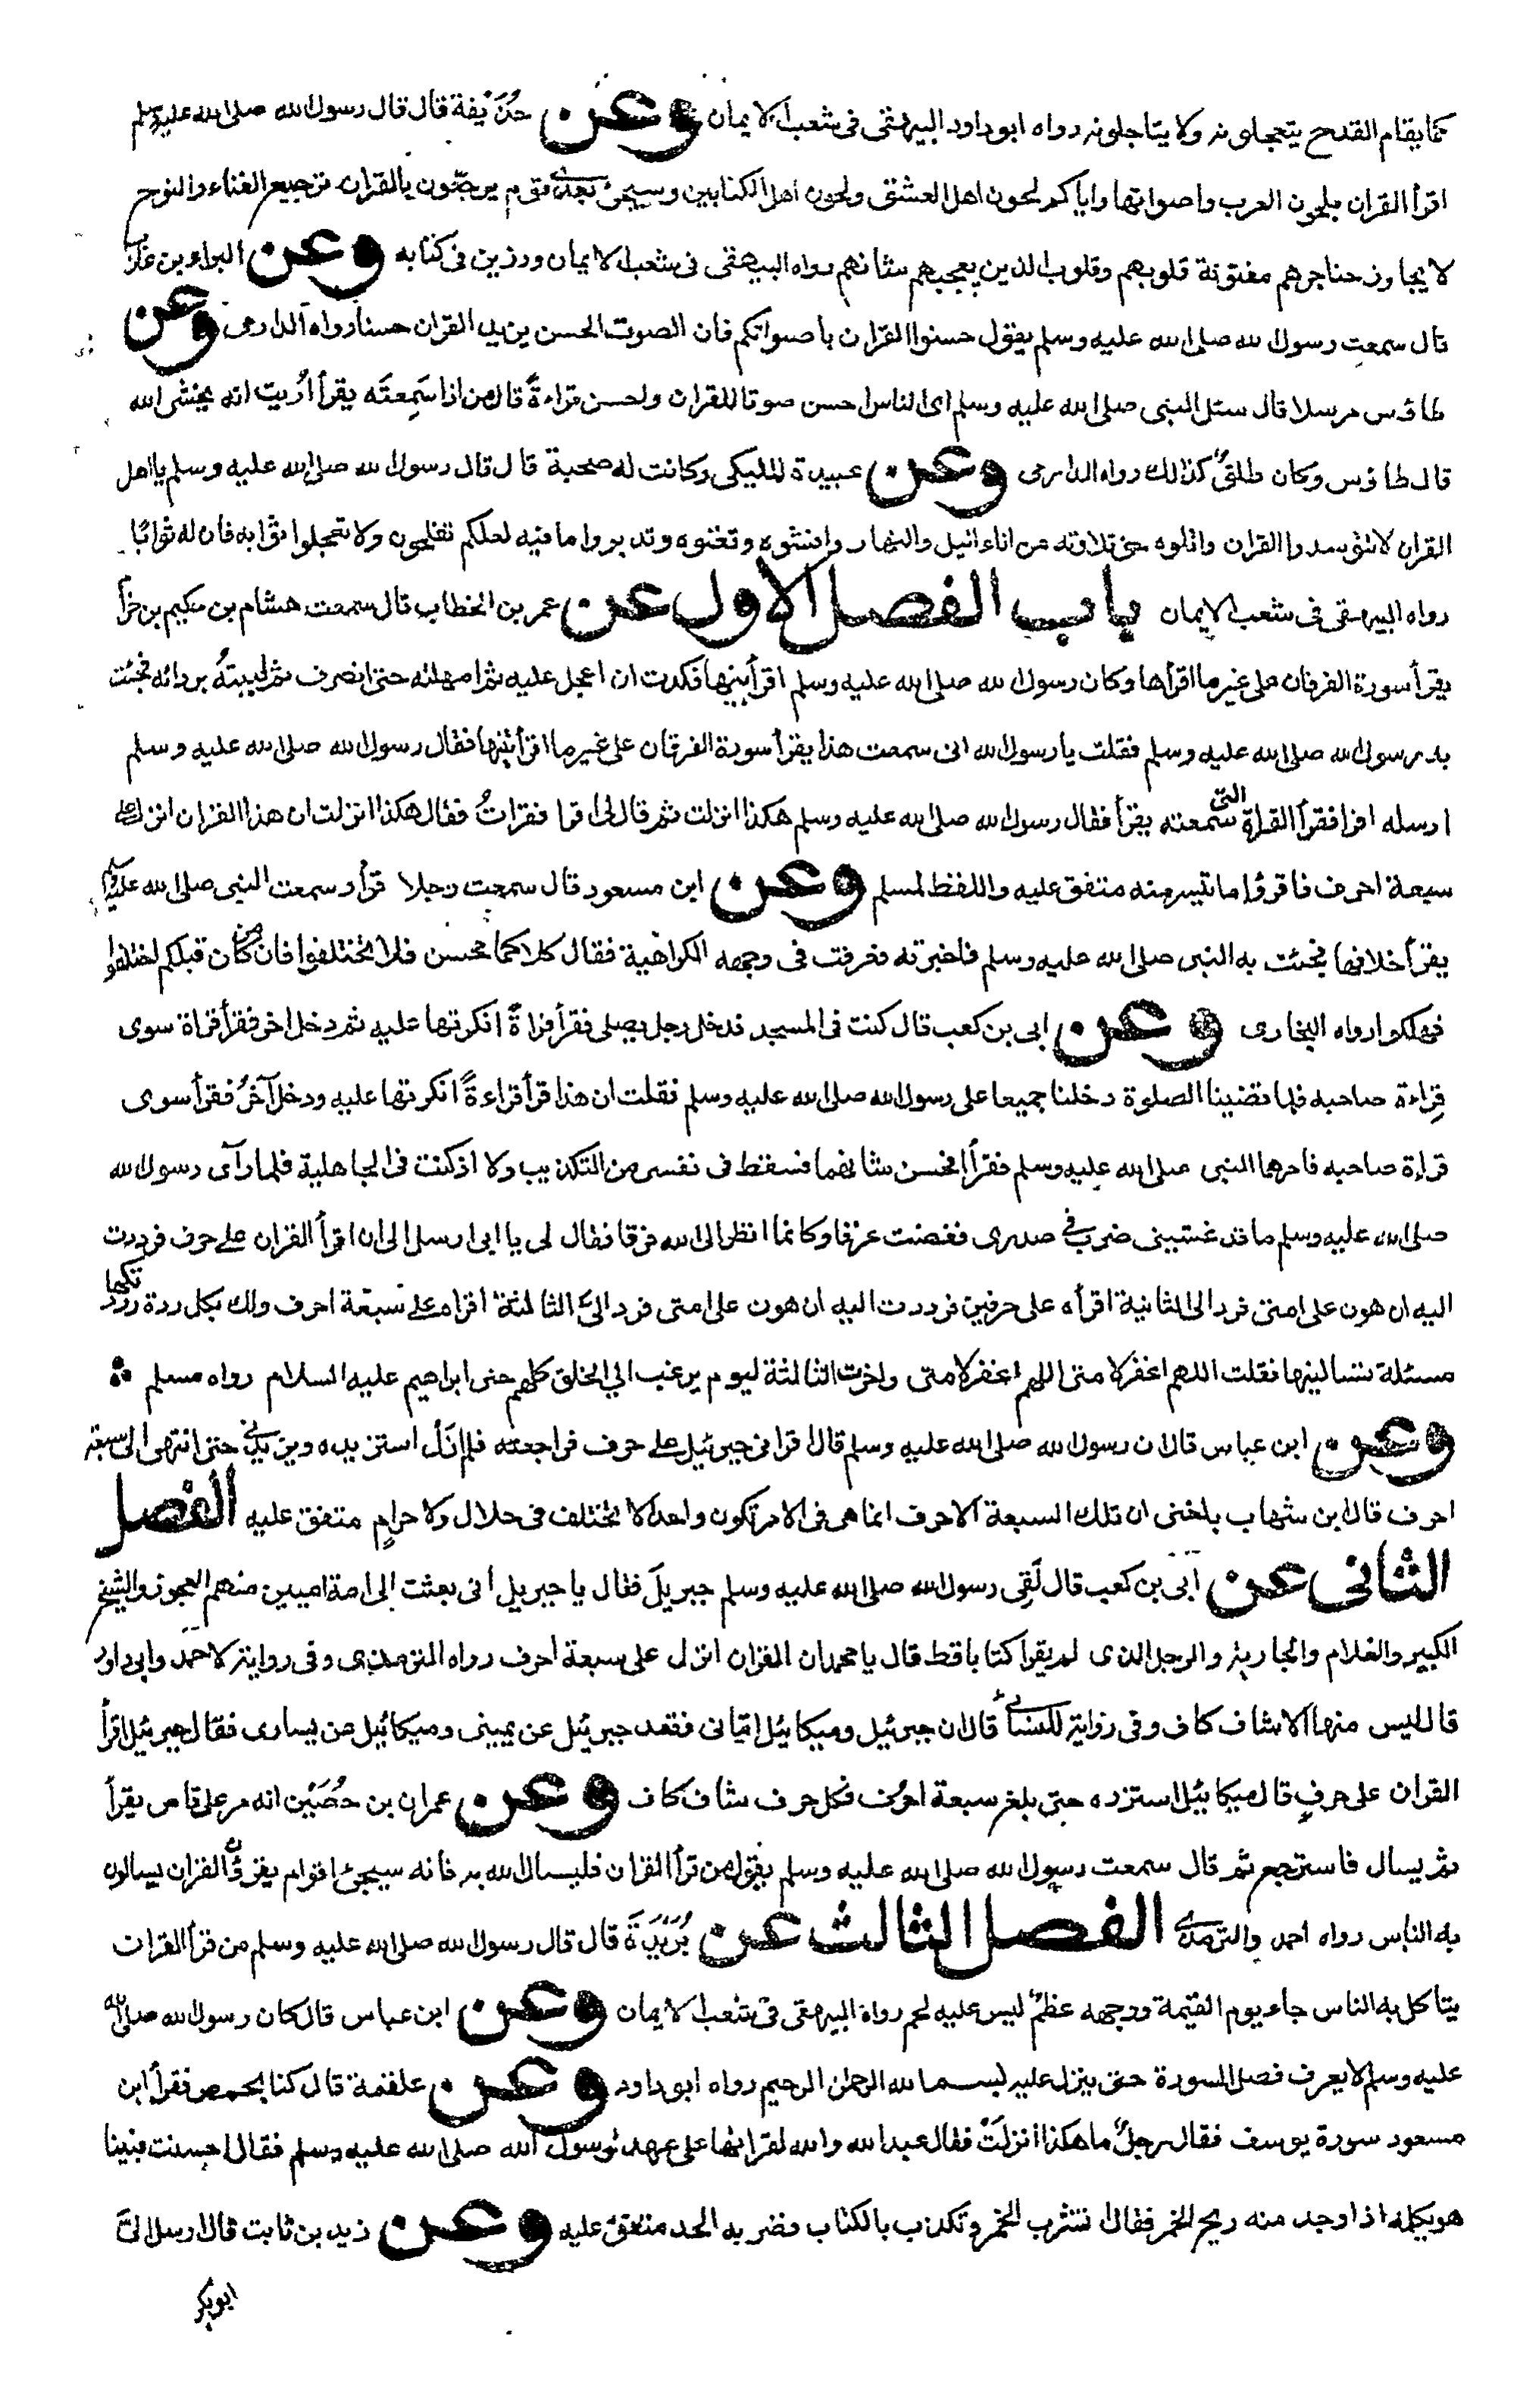 كما يقام القدح يتعجلونه ولا يتاجلونه رواه ابو داود البيهقى فى شعب الايمان وعن حُذَيفة قال قال رسول الله صلى الله عليه وسلم
اقرأ القران بلحون العرب واصواتها واياكم لحون اهل العشق ولحون اهل الكتابين وسيجئ بعدى قوم يرجعون بالقران ترجيع الغناء والنوح
لا يجاوز حناجرهم مفتونة قلوبهم وقلوب الذين يعجبهم شانهم رواه البيهقى فى شعب الايمان ورزين فى كتابه وعن البراء بن عازب
قال سمعت رسول الله صلى الله عليه وسلم يقول حسنوا القران باصواتكم فان الصوت الحسن يزيد القران حسنا رواه الدارمى وعن
طاؤس مرسلا قال سئل النبى صلى الله عليه وسلم اى الناس احسن صوتا للقران واحسن قراءةً قال من اذا سَمِعتَه يقرأ اُريت انه يخشى الله
قال طاؤس وكان طلقٌ كذالك رواه الدارمى وعن عبيدة المليكى وكانت له صحبة قال قال رسول الله صلى الله عليه وسلم يا اهل
القران لا تتوسدوا القران واتلوه حق تلاوته من اناء اليل والنهار وافشوه وتغنوه وتدبروا ما فيه لعلكم تفلحون ولا تعجلوا ثوابه فان له ثوابًا
رواه البيهقى فى شعب الايمان باب الفصل الاول عن عمر بن الخطاب قال سمعت هشام بن حكيم بن حزام
يقرأ سورة الفرقان على غير ما اقرأها وكان رسول الله صلى الله عليه وسلم اقرأنيها فكدت ان اعجل عليه ثم امهلته حتى انصرف ثم لببتهُ بردائه فجئت
به رسول الله صلى الله عليه وسلم فقلت يا رسول الله انى سمعت هذا يقرأ سورة الفرقان على غير ما اقرأتنيها فقال رسول الله صلى الله عليه وسلم
ارسله اقرا فقرأ القراة التى سمعته يقرأ فقال رسول الله صلى الله عليه وسلم هكذا انزلت ثم قال لى اقرا فقراتُ فقال هكذا انزلت ان هذا القران انزل على
سبعة احرف فاقرؤا ما تيسر منه متفق عليه واللفظ لمسلم وعن ابن مسعود قال سمعت رجلا قرأ وسمعت النبى صلى الله عليه وسلم
يقرأ خلافها فجئت به النبى صلى الله عليه وسلم فاخبرته فعرفت فى وجهه الكراهية فقال كلاكما محسن فلا تختلفوا فان من كان قبلكم اختلفوا
فهلكوا رواه البخارى وعن ابى بن كعب قال كنت فى المسجد فدخل رجل يصلى فقرأ قراةً انكرتها عليه ثم دخل اخر فقرأ قراة سوى
قِراءة صاحبه فلما قضينا الصلوة دخلنا جميعا على رسول الله صلى الله عليه وسلم فقلت ان هذا قرأ قراءةً انكرتها عليه ودخل آخرُ فقرأ سوى
قراءة صاحبه فامرهما النبى صلى الله عليه وسلم فقرأا فحسن شانهما فسقط فى نفسى من التكذيب ولا اذ كنت فى الجاهلية فلما رآى رسول الله
صلى الله عليه وسلم ما قد غشينى ضرب فى صدرى ففضت عرقا وكانما انظر الى الله فرقا فقال لى يا ابى ارسل الى ان اقرأ القران على حرف فرددت
اليه ان هون على امتى فرد الى الثانية اقرأه على حرفين فرددت اليه ان هون على امتى فرد الىّ الثالثة اقراه على سبعة احرف ولك بكل ردة رددتكها
مسئلة تسالنيها فقلت اللهم اغفر لامتى اللهم اغفر لامتى واخرت الثالثة ليوم يرغب الى الخلق كلهم حتى ابراهيم عليه السلام رواه مسلم
وعن ابن عباس قال ان رسول الله صلى الله عليه وسلم قال اقرانى جبرئيل على حرف فراجعته فلم ازَل استزيده ويزيدنى حتى انتهى الى سبعة
احرف قال ابن شهاب بلغنى ان تلك السبعة الاحرف انما هى فى الامر تكون واحدا لا تختلف فى حلال ولا حرامٍ متفق عليه الفصل
الثانى عن ابى بن كعب قال لَقِى رسول الله صلى الله عليه وسلم جبريلَ فقال يا جبريل انى بعثت الى امة اميين منهم العجوز والشيخ
الكبير والغلام والجارية والرجل الذى لم يقرا كتابا قط قال يا محمد ان القران انزل على سبعة احرف رواه الترمذى وفى رواية لاحمد وابى داود
قال ليس منها الا شاف كاف وفى رواية للنسائى قال ان جبرئيل وميكائيل اتيانى فقعد جبرئيل عن يمينى وميكائيل عن يسارى فقال جبرئيل اقرأ
القران على حرفٍ قال ميكائيل استزده حتى بلغ سبعة احرف فكل حرف شاف كاف وعن عمران بن حُصَين انه مر على قاص يقرأ
ثم يسال فاسترجع ثم قال سمعت رسول الله صلى الله عليه وسلم يقول من قرأ القران فليسال الله به فانه سيجئ اقوام يقرؤن القران يسالون
به الناس رواه احمد والترمذى الفصل الثالث عن بُرَيدَةَ قال قال رسول الله صلى الله عليه وسلم من قرأ القران
يتاكل به الناس جاء يوم القيمة ووجهه عظمٌ ليس عليه لحم رواه البيهقى فى شعب الايمان وعن ابن عباس قال كان رسول الله صلى الله
عليه وسلم لا يعرف فصل السورة حتى ينزل عليه بسم الله الرحمن الرحيم رواه ابو داود وعن علقمة قال كنا بحمص فقرأ ابن
مسعود سورة يوسف فقال رجلٌ ما هكذا انزلَت فقال عبد الله والله لقراتها على عهد رسول الله صلى الله عليه وسلم فقال احسنت فبينا
هو يكلمه اذا وجد منه ريح الخمر فقال اتشرب الخمر وتكذب بالكتاب فضربه الحد متفق عليه وعن زيد بن ثابت قال ارسل الىَّ
ابوبكر